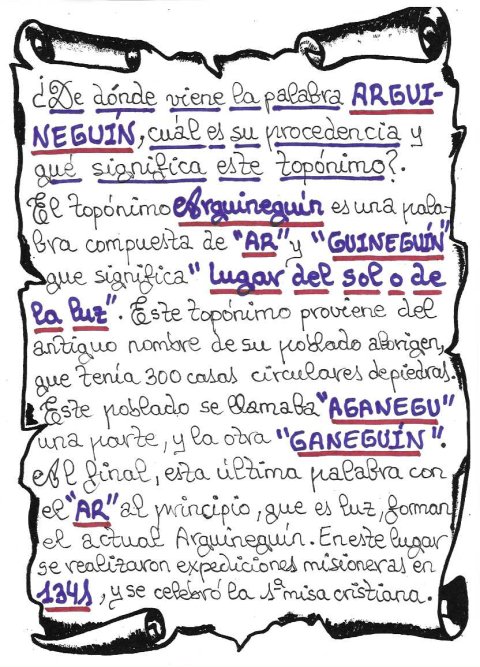 ¿De dónde viene la palabra ARGUI-
NEGUÍN, cuál es su procedencia y
qué significa este topónimo?.
El topónimo Arguineguín es una pala-
bra compuesta de "AR" y "GUINEGUÍN"
que significa "lugar del sol o de
la luz". Este topónimo proviene del
antiguo nombre de su poblado aborigen,
que tenía 300 casas circulares de piedras.
Este poblado se llamaba "AGANEGU"
una parte, y la otra "GANEGUÍN".
Al final, esta última palabra con
el "AR" al principio, que es luz, forman
el actual Arguineguín. En este lugar
se realizaron expediciones misioneras en
1341, y se celebró la 1ª misa cristiana.